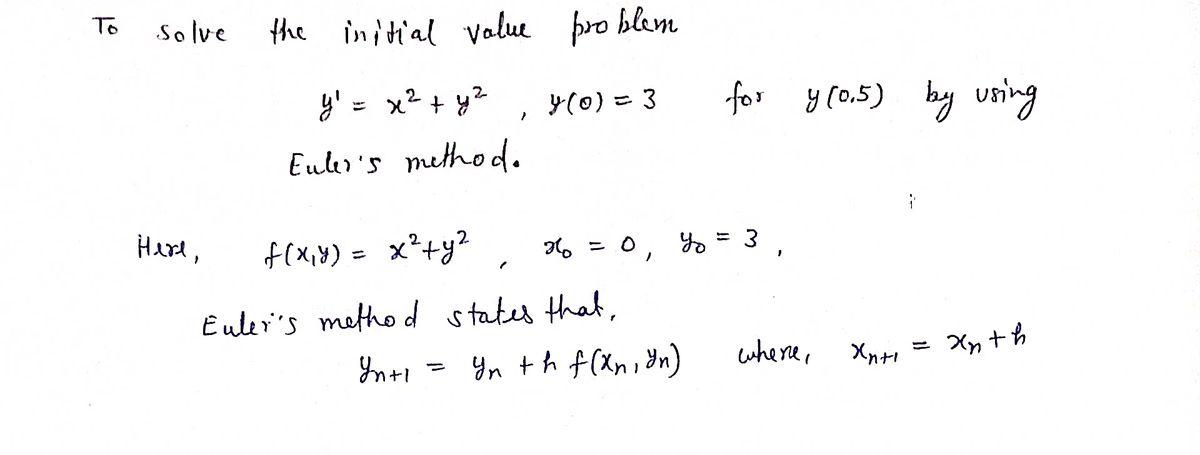 To solve the initial value problem
y' = x² + y² , y(0) = 3 for y(0.5) by using
Euler's method.
Here, f(x,y) = x²+y² , x₀ = 0, y₀ = 3 ,
Euler's method states that,
yₙ₊₁ = yₙ + h f(xₙ, yₙ) where, xₙ₊₁ = xₙ + h